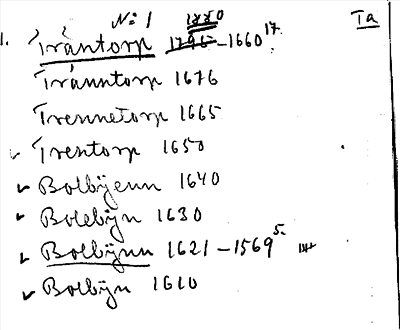 No 1 1880 Ta
1. Tråntorp 1796 - 1660 17.
Trånntorp 1676
Trennetorp 1665
Trentorp 1650
Bolbÿenn 1640
Bolebÿn 1630
Bolbÿnn 1621 - 1569 5.
Bolbÿn 1610